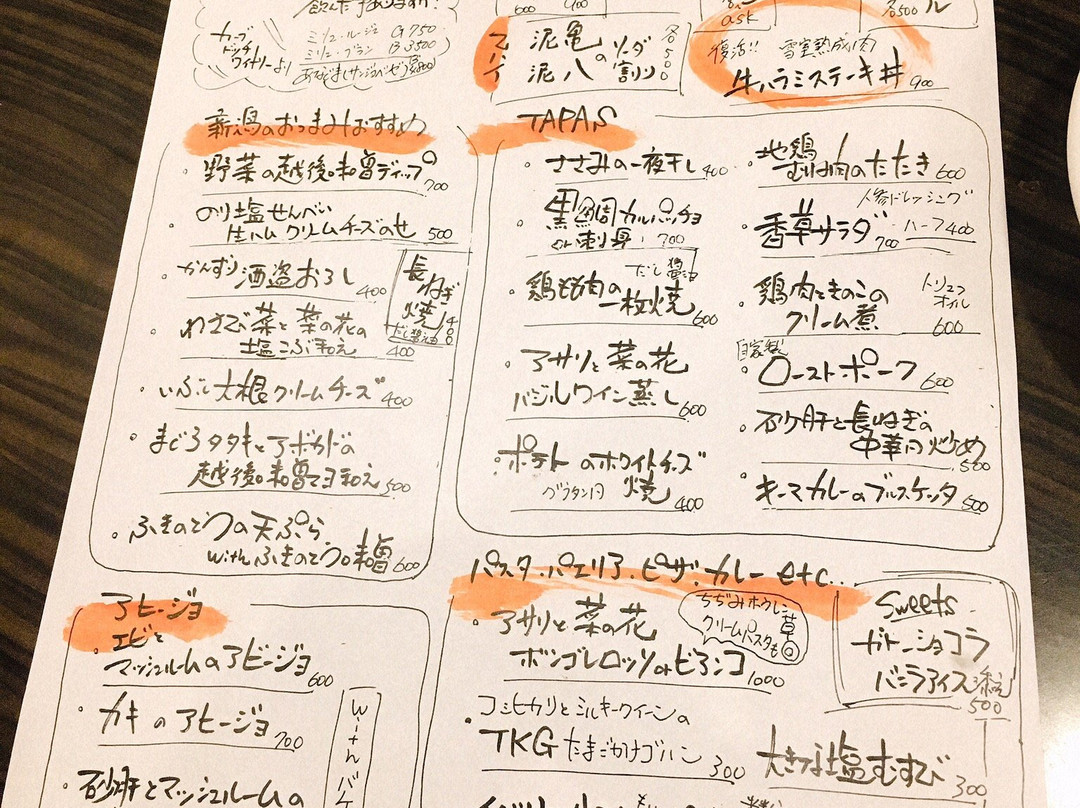 カーブ
ドッチ
ワイナリーより
ミリュ・ルージュ G750
ミリュ・ブラン B3500
600
900
ask
各500
泥亀
泥八
の
ソーダ
割り
各500
復活!! 雪室熟成肉
牛ハラミステーキ丼 900
新潟のおつまみおすすめ
・野菜の越後味噌ディップ 700
・のり塩せんべい
生ハムクリームチーズのせ 500
・かんずり酒盗おろし 400
長ねぎ焼 400
だし醤油
・わさび菜と菜の花の
塩こぶ和え 400
・いぶし大根クリームチーズ 400
・まぐろタタキとアボカドの
越後味噌マヨ和え 500
・ふきのとうの天ぷら
withふきのとう味噌 600
TAPAS
・ささみの一夜干し 400
・黒鯛カルパッチョ
or 刺身 700
だし醤油
・鶏もも肉の
一枚焼 600
・アサリと菜の花
バジルワイン蒸し 600
・ポテトのホワイトチーズ
グラタン風 焼 400
・地鶏
むね肉のたたき 600
人参ドレッシング
・香草サラダ 700 ハーフ400
・鶏肉ときのこの
クリーム煮 600
トリュフ
オイル
自家製
・ローストポーク 600
・砂肝と長ねぎの
中華風炒め 500
・キーマカレーのブルスケッタ 500
アヒージョ
・エビと
マッシュルームのアヒージョ 600
・カキのアヒージョ 700
・砂肝とマッシュルームの
withバゲ
パスタ・パエリア・ピザ・カレー etc...
・アサリと菜の花
ボンゴレロッソorビアンコ 1000
ちぢみホウレン草
クリームパスタも◎
・コシヒカリとミルキークイーンの
TKG たまごかけゴハン 300
大きな塩むすび 300
Sweets
ガトーショコラ
バニラアイス添え
500